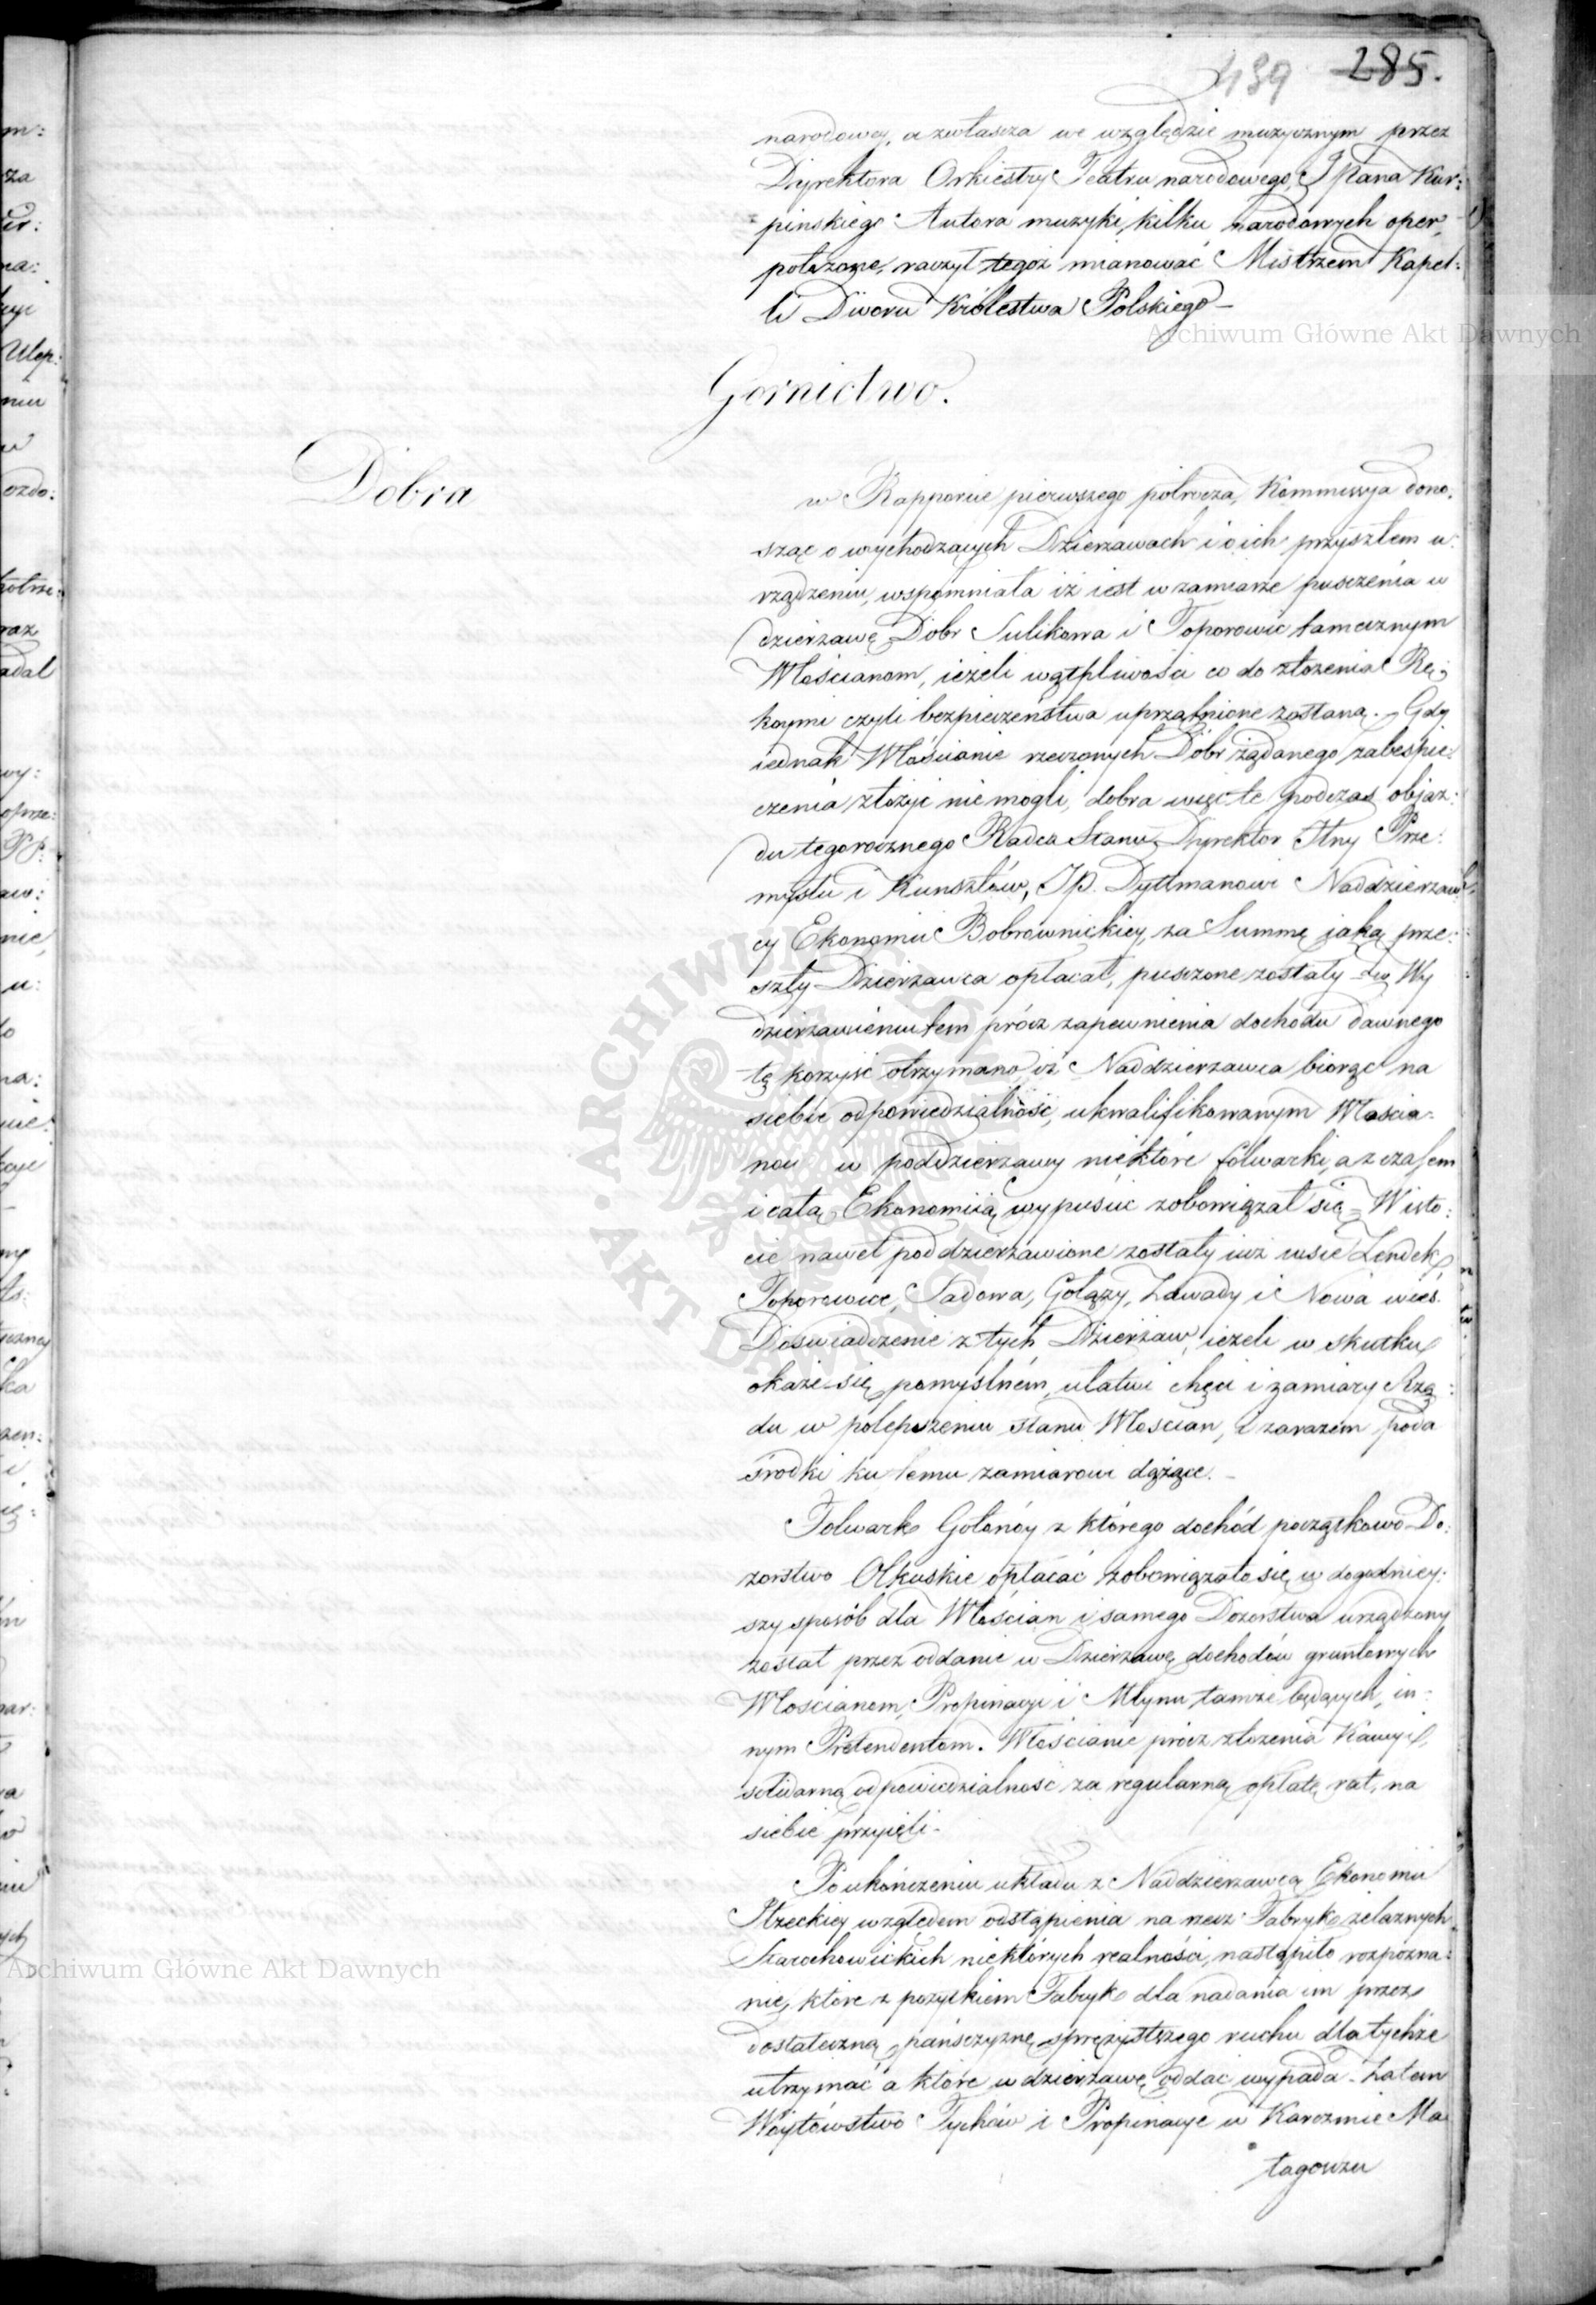 439 285.
narodowey, a zwłaszcza we względzie muzycznym przez
Dyrektora Orkiestry Teatru narodowego, JPana Kur:
pinskiego Autora muzyki kilku narodowych oper,
położone, raczył tegoż mianować Mistrzem Kapel:
li Dworu Królestwa Polskiego –
Archiwum Główne Akt Dawnych
Gornictwo.
Dobra
w Rapporcie pierwszego półrocza, Kommissya dono:
sząc o wychodzących Dzierzawach i o ich przyszłem u:
rządzeniu, wspomniała iż iest w zamiarze puszczenia w
dzierzawę Dobr Sulikowa i Toporowic tamecznym
Włościanom, ieżeli wątpliwości co do złożenia Rę:
koymi czyli bezpieczeństwa uprzątnione zostaną. – Gdy
iednak Włościanie rzeczonych Dobr żądanego zabespie:
czenia złożyć nie mogli, dobra więc te podczas objaz:
du tegorocznego Radca Stanu Dyrektor Jlny Prze:
mysłu i Kunsztów, JP. Dyttmanowi Naddzierzaw:
cy Ekonomii Bobrownickiey, za Summę jaką prze:
szły Dzierzawca opłacał, puszczone zostały – Wy
dzierzawieniu tem prócz zapewnienia dochodu dawnego
tę korzyść otrzymano, iż Naddzierzawca biorąc na
siebie odpowiedzialność, ukwalifikowanym Włościa:
nom w poddzierzawy niektóre folwarki, a z czasem
i całą Ekonomiią wypuścić zobowiązał się – W isto:
cie nawet poddzierzawione zostały iuż wsie Zendek,
Toporowice, Sadowa, Gołązy, Zawady i Nowa wieś.
Doswiadczenie z tych Dzierżaw, ieżeli w skutku
okaże się pomyślném, ułatwi chęci i zamiary Rzą:
du w polepszeniu stanu Włościan, i zarazem poda
środki ku temu zamiarowi dążące. –
Folwark Gołonóg z którego dochód początkowo Do:
zorstwo Olkuskie opłacać zobowiązało się, w dogodniey:
szy sposób dla Włościan i samego Dozorstwa urządzony
został przez oddanie w Dzierzawę dochodów gruntowych
Włościanom, Propinacyi i Młynu tamże będących, in:
nym Pretendentom. Włościanie prócz złożenia Kaucyi,
solidarną odpowiedzialność za regularną opłatę rat, na
siebie przyięli –
Po ukończeniu układu z Naddzierzawcą Ekonomii
Iłzeckiey względem odstąpienia na rzecz Fabryk żelaznych
Starachowickich niektórych realności, nastąpiło rozpozna:
nie, które z pozyskiem Fabryk dla nadania im przez
dostateczną pańszczyznę sprężystszego ruchu dla tychże
utrzymać a które w dzierżawę oddać wypada – Zatem
Wóytówstwo Tychów i Propinacye w Karczmie Ma
łagowzu
Archiwum Główne Akt Dawnych
ARCHIWUM GŁÓWNE AKT DAWNYCH